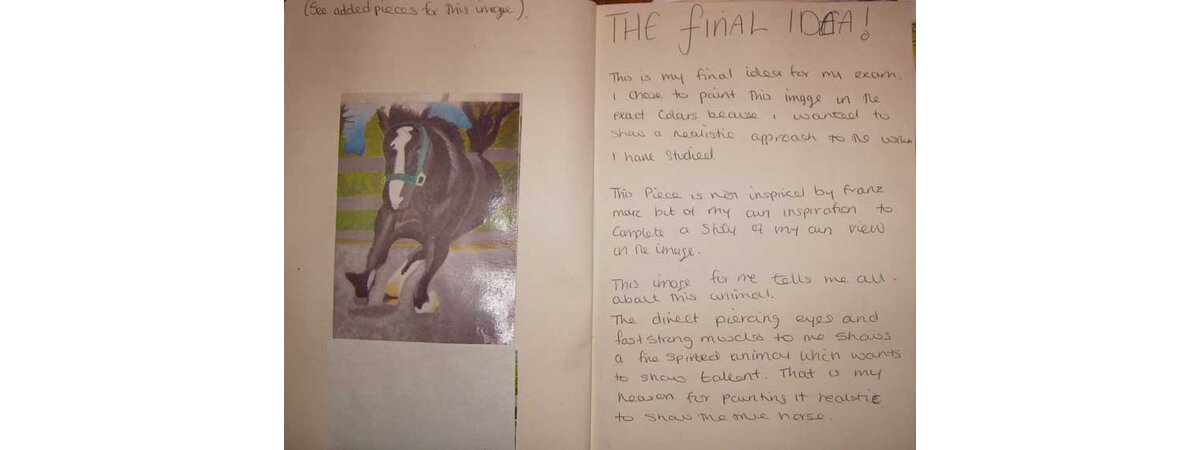 (See added pieces for this image).
THE FINAL IDEA!
This is my final idea for my exam.
I chose to paint this image in the
exact Colars because i wanted to
show a realistic approach to the work
I have studied
This Piece is not inspired by Franz
marc but of my own inspiration to
Complete a Study of my own view
on the image.
This image for me tells me all
about this animal.
The direct piercing eyes and
fast strong muscles to me shows
a fire spirited animal which wants
to show tallent. That is my
reason for painting it realistic
to show the true horse.